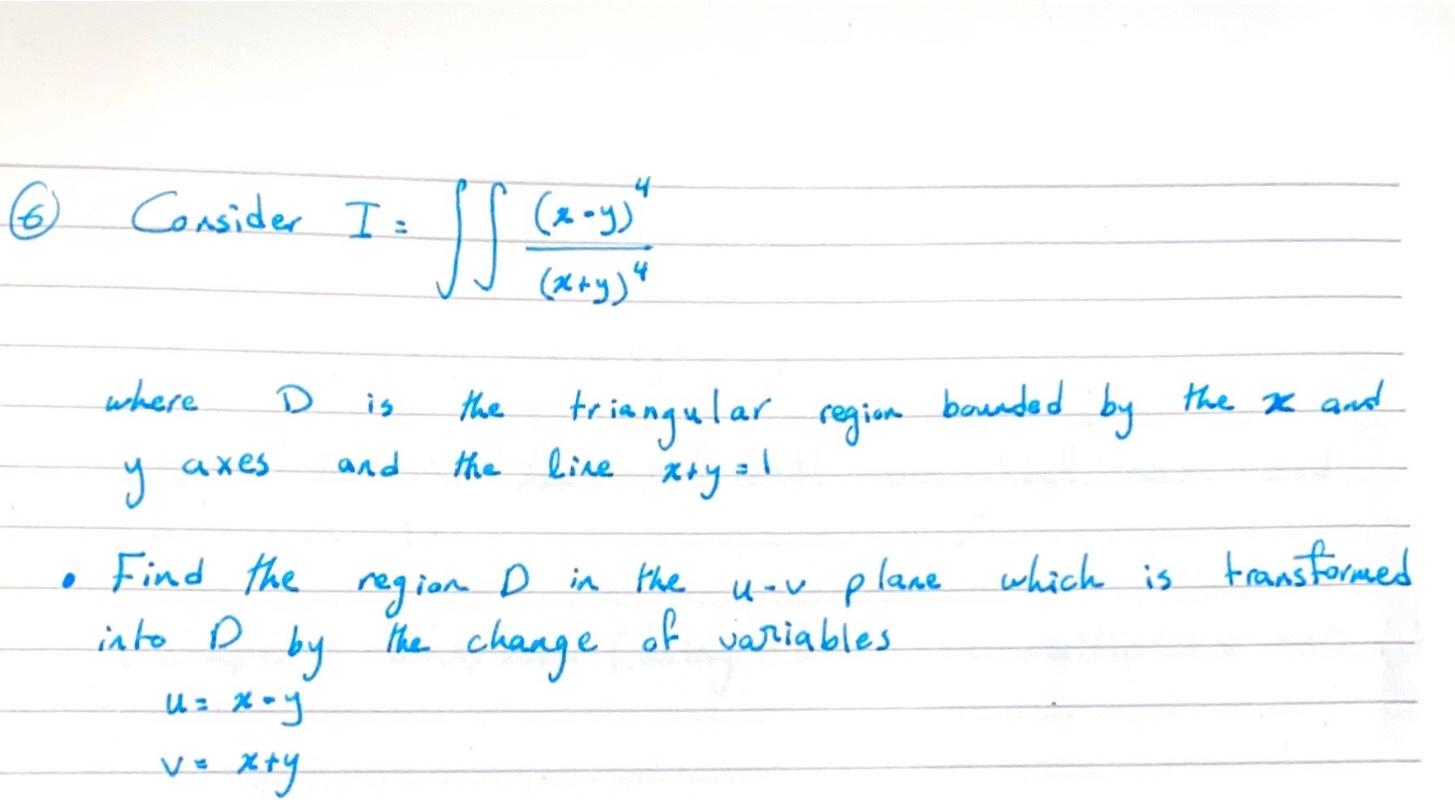 ⑥ Consider I = ∫∫ (x-y)⁴/(x+y)⁴
where D is the triangular region bounded by the x and
y axes and the line x+y=1
• Find the region D in the u-v plane which is transformed
into D by the change of variables
u = x-y
v = x+y